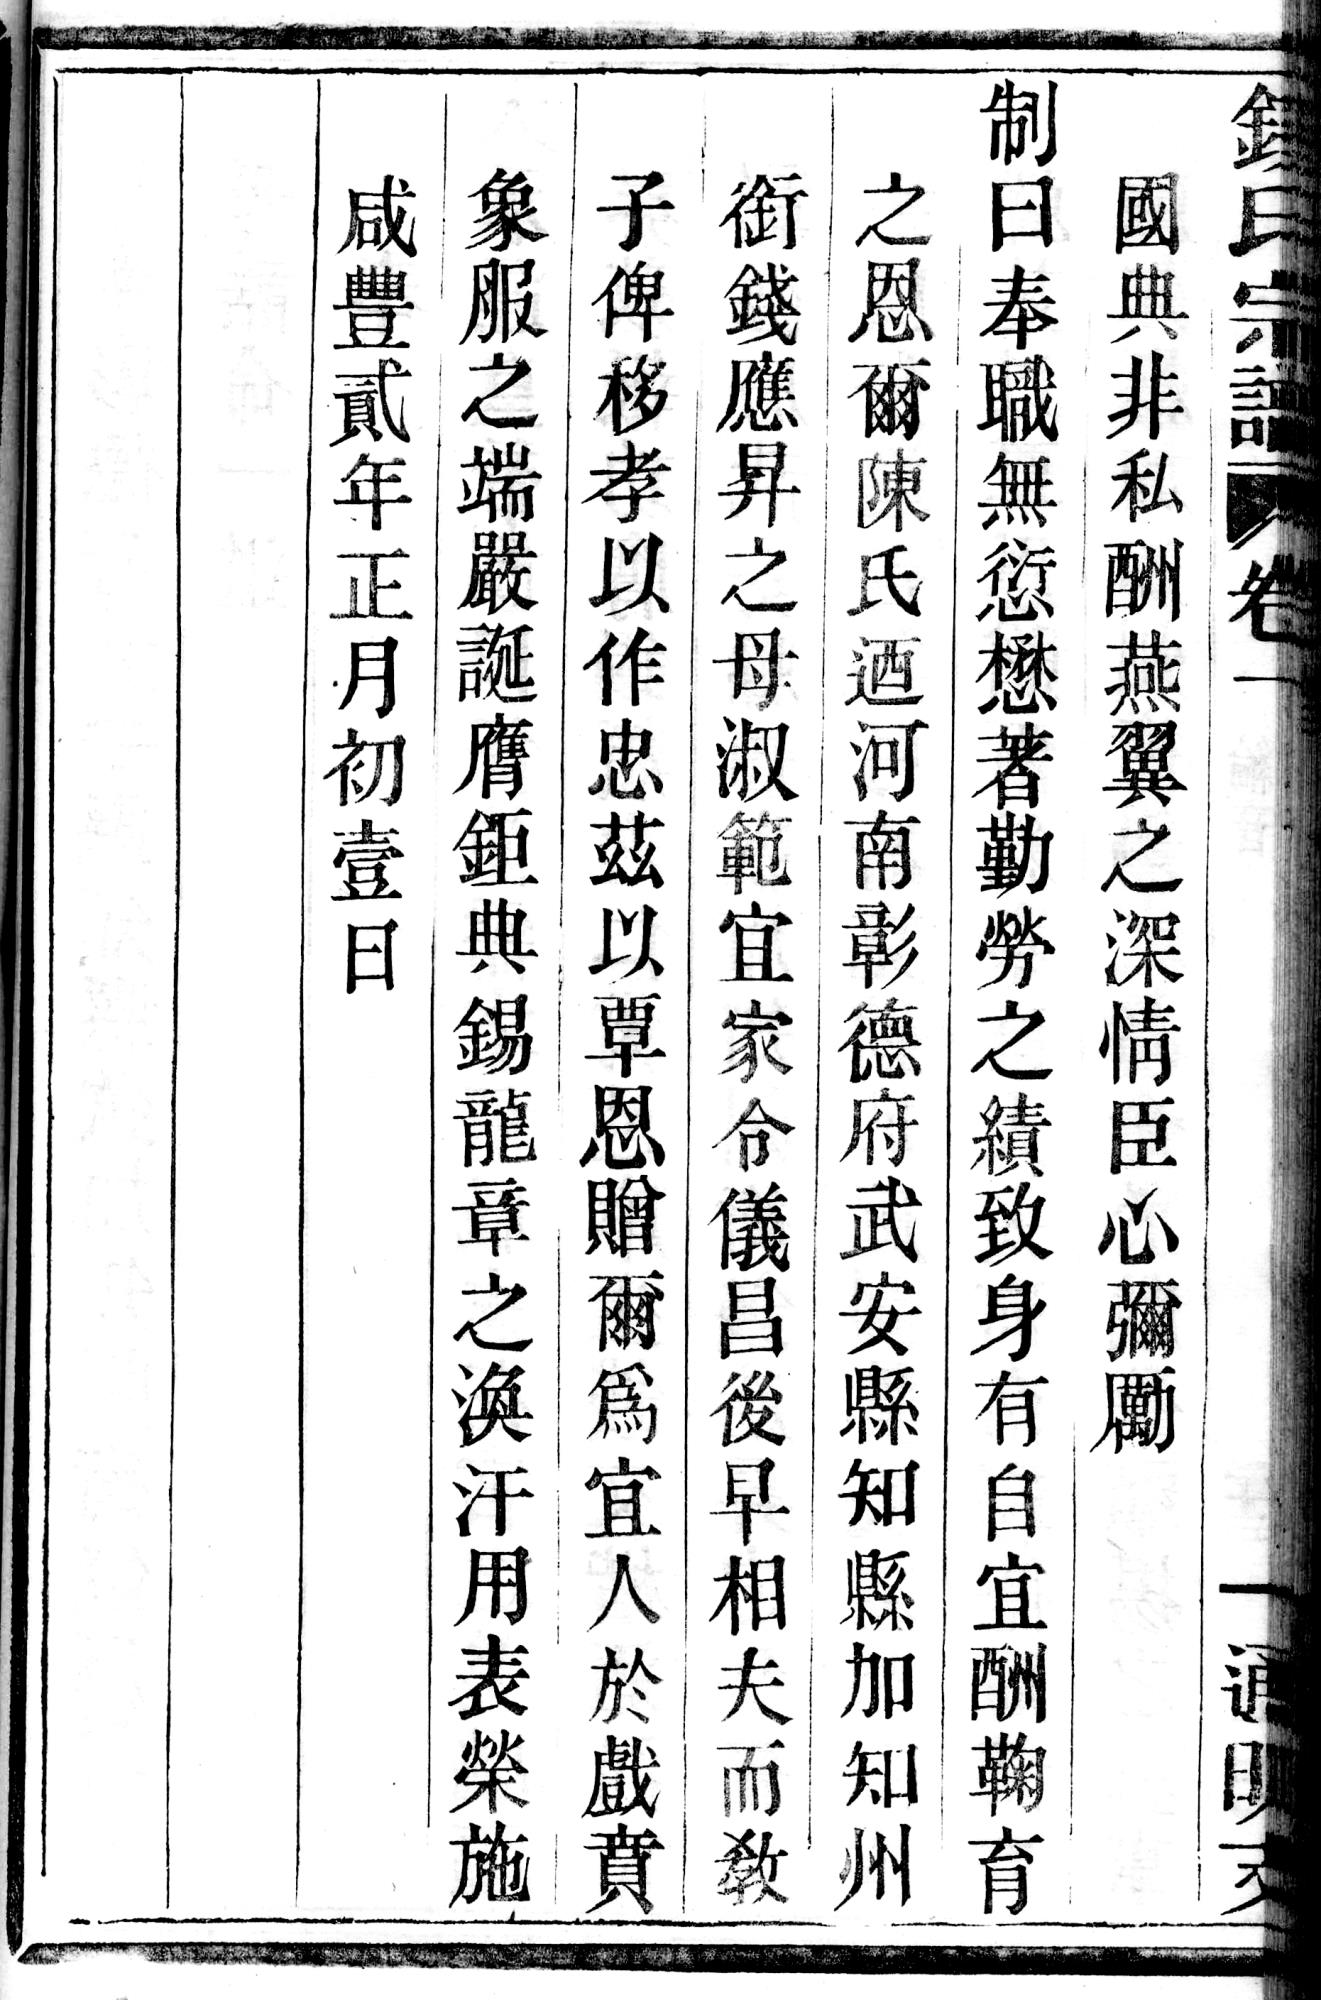 錢氏宗譜 卷一
國典非私酬燕翼之深情臣心彌勵
制曰奉職無愆懋著勤勞之績致身有自宜酬鞠育
之恩爾陳氏迺河南彰德府武安縣知縣加知州
銜錢應昇之母淑範宜家令儀昌後早相夫而敎
子俾移孝以作忠茲以覃恩贈爾爲宜人於戲賁
象服之端嚴誕膺鉅典錫龍章之渙汗用表榮施
咸豐貳年正月初壹日